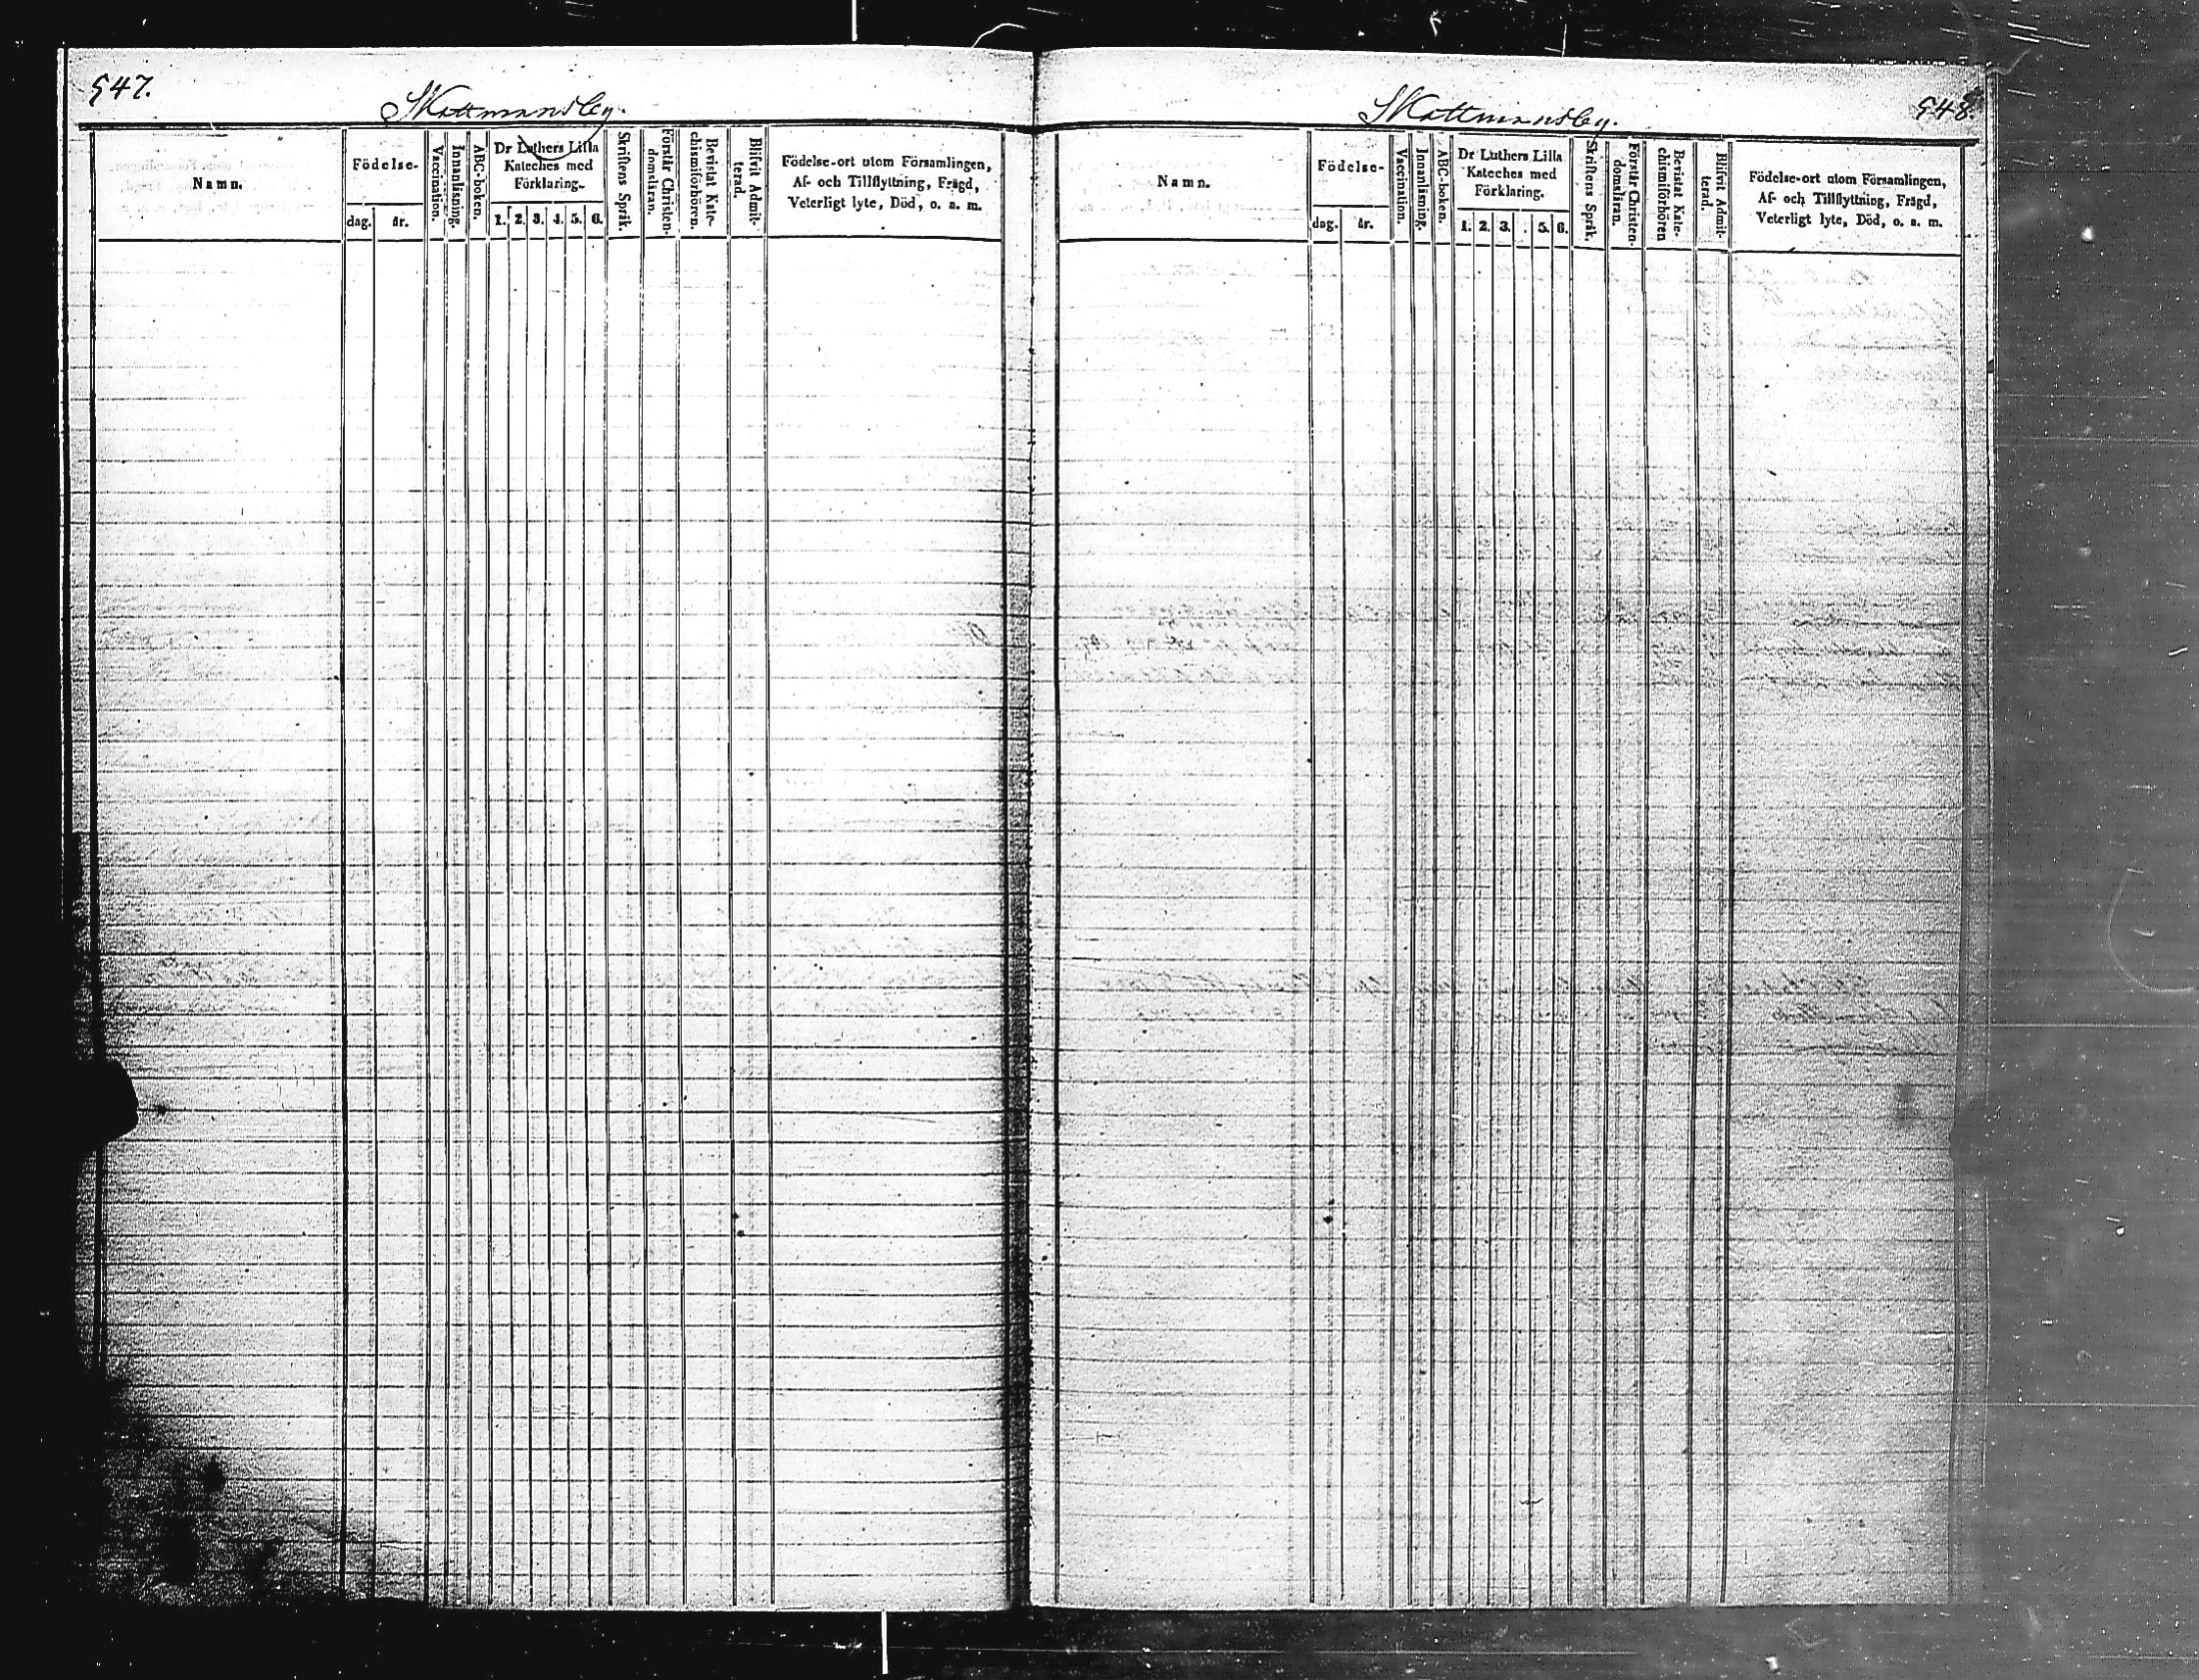 547.
Skattmansby.
Namn.
Födelse-
dag. år.
Vaccination.
Innanläsning.
ABC-boken.
Dr Luthers Lilla
Kateches med
Förklaring.
1. 2. 3. 4. 5. 6.
Skriftens Språk.
Förstår Christen-
domsläran.
Bevistat Kate-
chismiförhören.
Blifvit Admit-
terad.
Födelse-ort utom Församlingen,
Af- och Tillflyttning, Frägd,
Veterligt lyte, Död, o. s. m.
548.
Skattmansby.
Namn.
Födelse-
dag. år.
Vaccination.
Innanläsning.
ABC-boken.
Dr Luthers Lilla
Kateches med
Förklaring.
1. 2. 3. . 5. 6.
Skriftens Språk.
Förstår Christen-
domsläran.
Bevistat Kate-
chismiförhören
Blifvit Admit-
terad.
Födelse-ort utom Församlingen,
Af- och Tillflyttning, Frägd,
Veterligt lyte, Död, o. s. m.